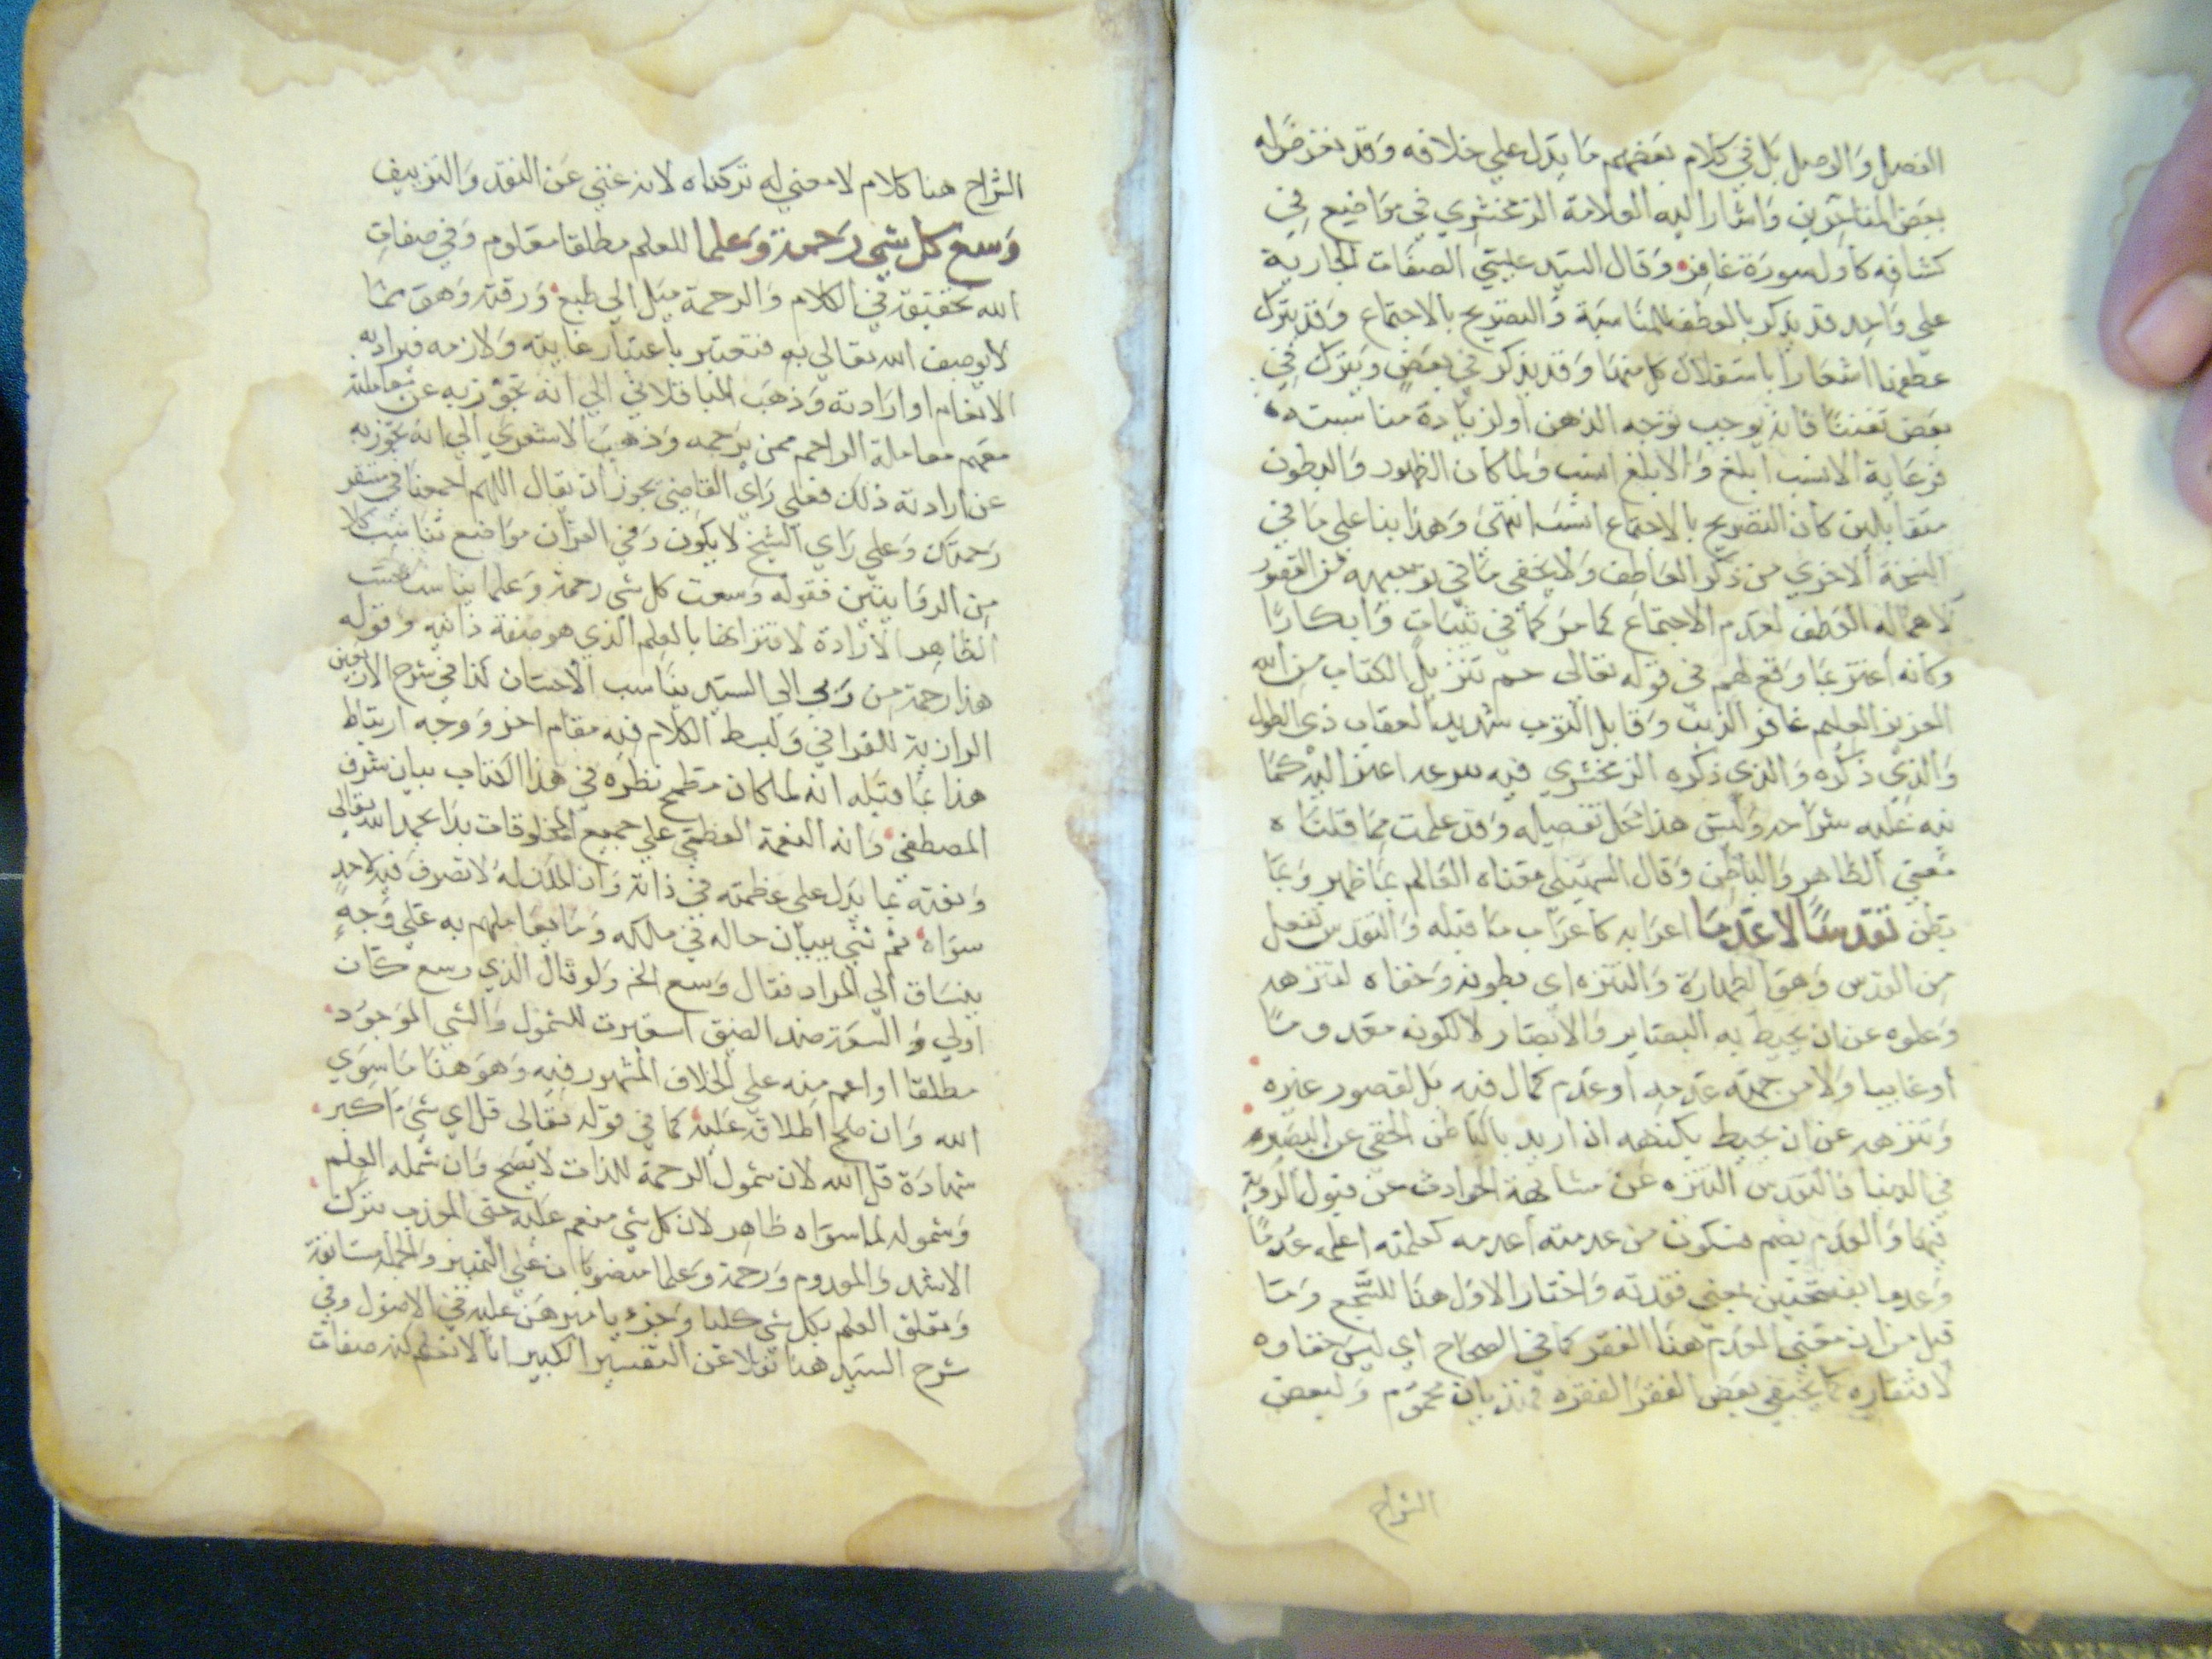 الفصل والوصل بل في كلام بعضهم ما يدل علي خلافه وقد تعرض له
بعض المتاخرين واشار اليه العلامة الزمخشري في مواضع في
كشافه كاول سورة غافر وقال السيد عليتي الصفات الجارية
علي واحد قد يذكر بالعطف للمناسبة والتصريح بالاجتماع وقد يترك
عطفها اشعارا باستقلال كل منها وقد يذكر في بعض ويترك في
بعض تفننا فانه يوجب توجه الذهن او لزيادة مناسبته
فرعاية الانسب ابلغ والابلغ انسب ولما كان الظهور والبطون
متقابلين كان التصريح بالاجتماع انسب انتهى وهذا بنا علي ما في
النسخة الاخري من ذكر العاطف ولا يخفى ما في توجيهه من القصور
لاهماله العطف لعدم الاجتماع كما مر كما في ثيبات وابكارا
وكانه اغتر بما وقع لهم في قوله تعالى حم تنزيل الكتاب من الله
العزيز العليم غافر الذنب وقابل التوب شديد العقاب ذي الطول
والذي ذكره والذي ذكره الزمخشري فيه اليه كما
نبه عليه شراحه وليس هذا محل تفصيله وقد علمت مما قلناه
معنى الظاهر والباطن وقال السهيلي معناه العالم بما ظهر وبما
بطن تقدسا لا عدما اعرابه كاعراب ما قبله والتقدس تفعل
من القدس وهو الطهارة والتنزه اي بطونه وخفاه لتنزهه
وعلوه عن ان يحيط به البصاير والابصار لا لكونه معدوما
او غايبا ولا من جهة عدمه او عدم كمال فيه بل لقصور غيره
وتنزهه عن ان يحيط بكنهه ان اريد بالباطن الخفي عن البصر
في الدنيا فالتقدس التنزه عن مشابهة الحوادث عن قبول الروية
فيها والعدم بضم فسكون من عدمته اعدمه كعلمته اعلمه عدما
وعدما بفتحتين بمعنى فقدته واختار الاول هنا للسجع وما
قيل من ان معنى العدم هنا الفقر كما في الصحاح اي ليس خفاوه
لافتقاره كما يختفي بعض الفقرا لفقره فهذيان محموم ولبعض
الشراح
الشراح هنا كلام لا معني له تركناه لانه غني عن النقد والتزييف
وسع كل شي رحمة وعلما للعلم مطلقا معلوم وفي صفات
الله تحقيقه في الكلام والرحمة ميل الي طبع ورقة وهو مما
لا يوصف الله تعالي به فتعتبر باعتبار غايته ولازمه فيراد به
الانعام او ارادته وذهب الباقلاني الي انه تجوز به عن معاملته
معهم معاملة الراحم ممن يرحمه وذهب الاشعري الي انه تجوز به
عن ارادته ذلك فعلي راي القاضي يجوز ان يقال اللهم اجمعنا في مستقر
رحمتك وعلي راي الشيخ لا يكون وفي القران مواضع تناسب كلا
من الروايتين فقوله وسعت كل شي رحمة وعلما يناسب بحسب
الظاهر الارادة لاقترانها بالعلم الذي هو صفة ذاتيه وقوله
هذا رحمة من ربي الي السيد يناسب الاحسان كذا في شرح الاربعين
الرازية للقرافي ولبسط الكلام فيه مقام اخر ووجه ارتباط
هذا بما قبله انه لما كان مطمح نظره في هذا الكتاب بيان شرف
المصطفي وانه النعمة العظمي علي جميع المخلوقات بدا بحمد الله تعالى
ونعته بما يدل علي عظمته في ذاته وان الملك له لا تصرف فيه لاحد
سواه ثم ثني ببيان حاله في ملكه وما يعاملهم به علي وجه
ينساق الي المراد فقال وسع الخ ولو قال الذي وسع كان
اولي والسعة ضد الضيق استعيرت للشمول والشي الموجود
مطلقا او اعم منه علي الخلاف المشهور فيه وهو هنا ما سوي
الله وان صلح اطلاقه عليه كما في قوله تعالى قل اي شي اكبر
شهادة قل الله لان شمول الرحمة للذات لا يصح وان شمله العلم
وشموله لما سواه ظاهر لان كل شي منعم عليه حتى المعذب بترك
الاشد والمعدوم ورحمة وعلما منصوبان علي التمييز والجملة مستانفة
وتعلق العلم بكل شي كليا وجزءيا مبرهن عليه في الاصول وفي
شرح السيد هنا نقلا عن التفسير الكبير انا لا نعلم كنه صفات